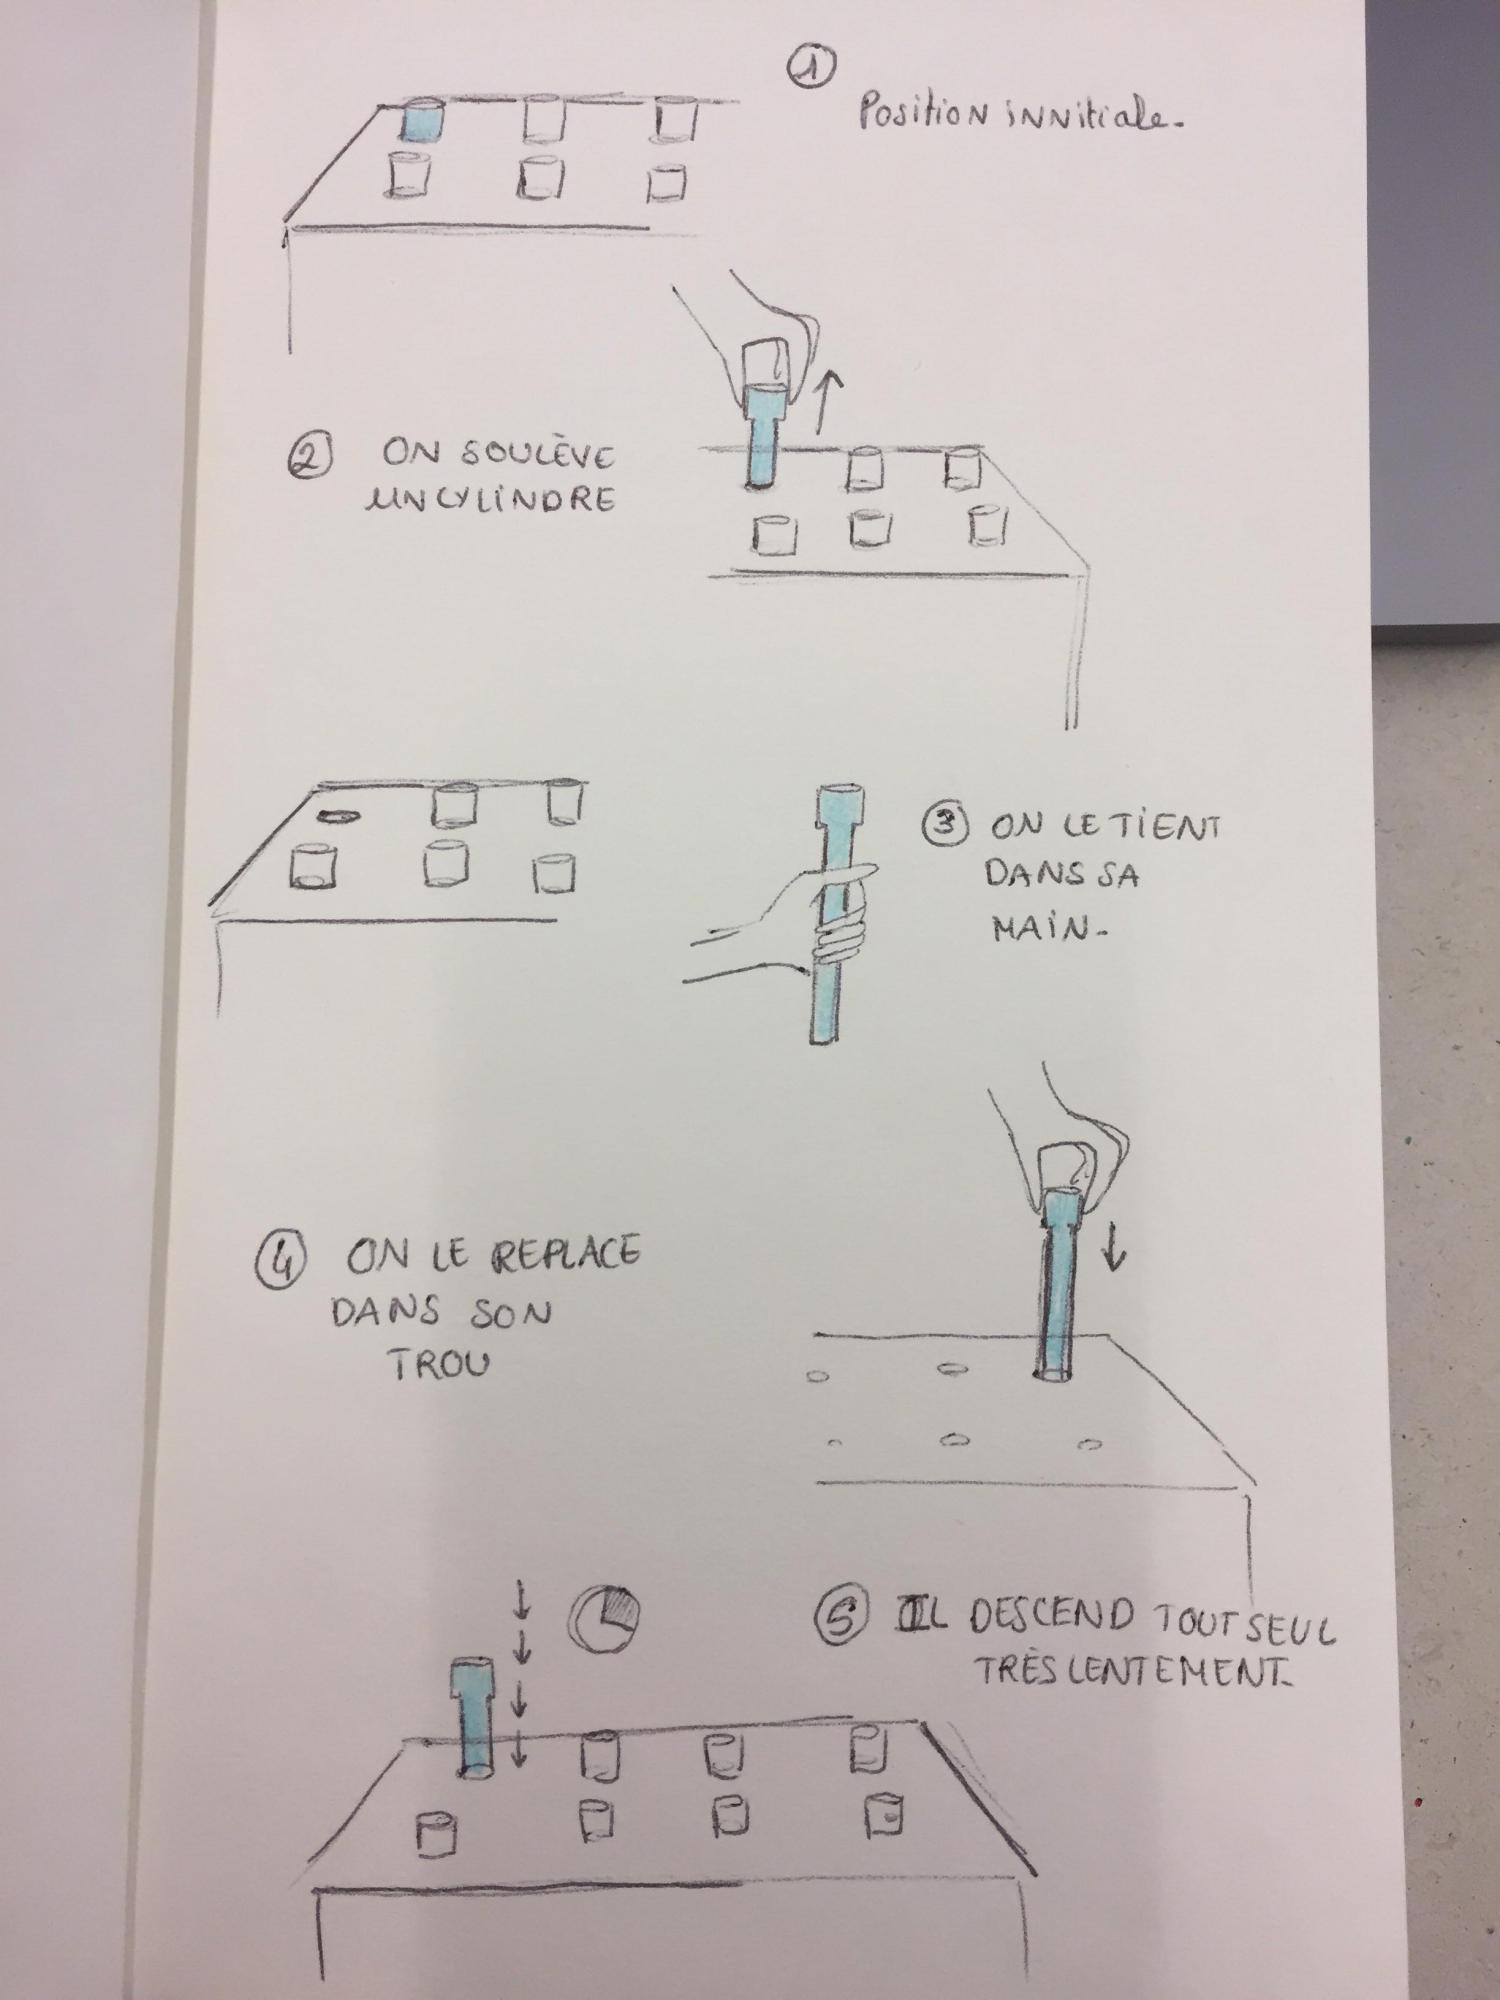 1
Position innitiale.
2 ON SOULÈVE
UN CYLINDRE
3 ON LE TIENT
DANS SA
MAIN.
4 ON LE REPLACE
DANS SON
TROU
5 IL DESCEND TOUT SEUL
TRÈS LENTEMENT.